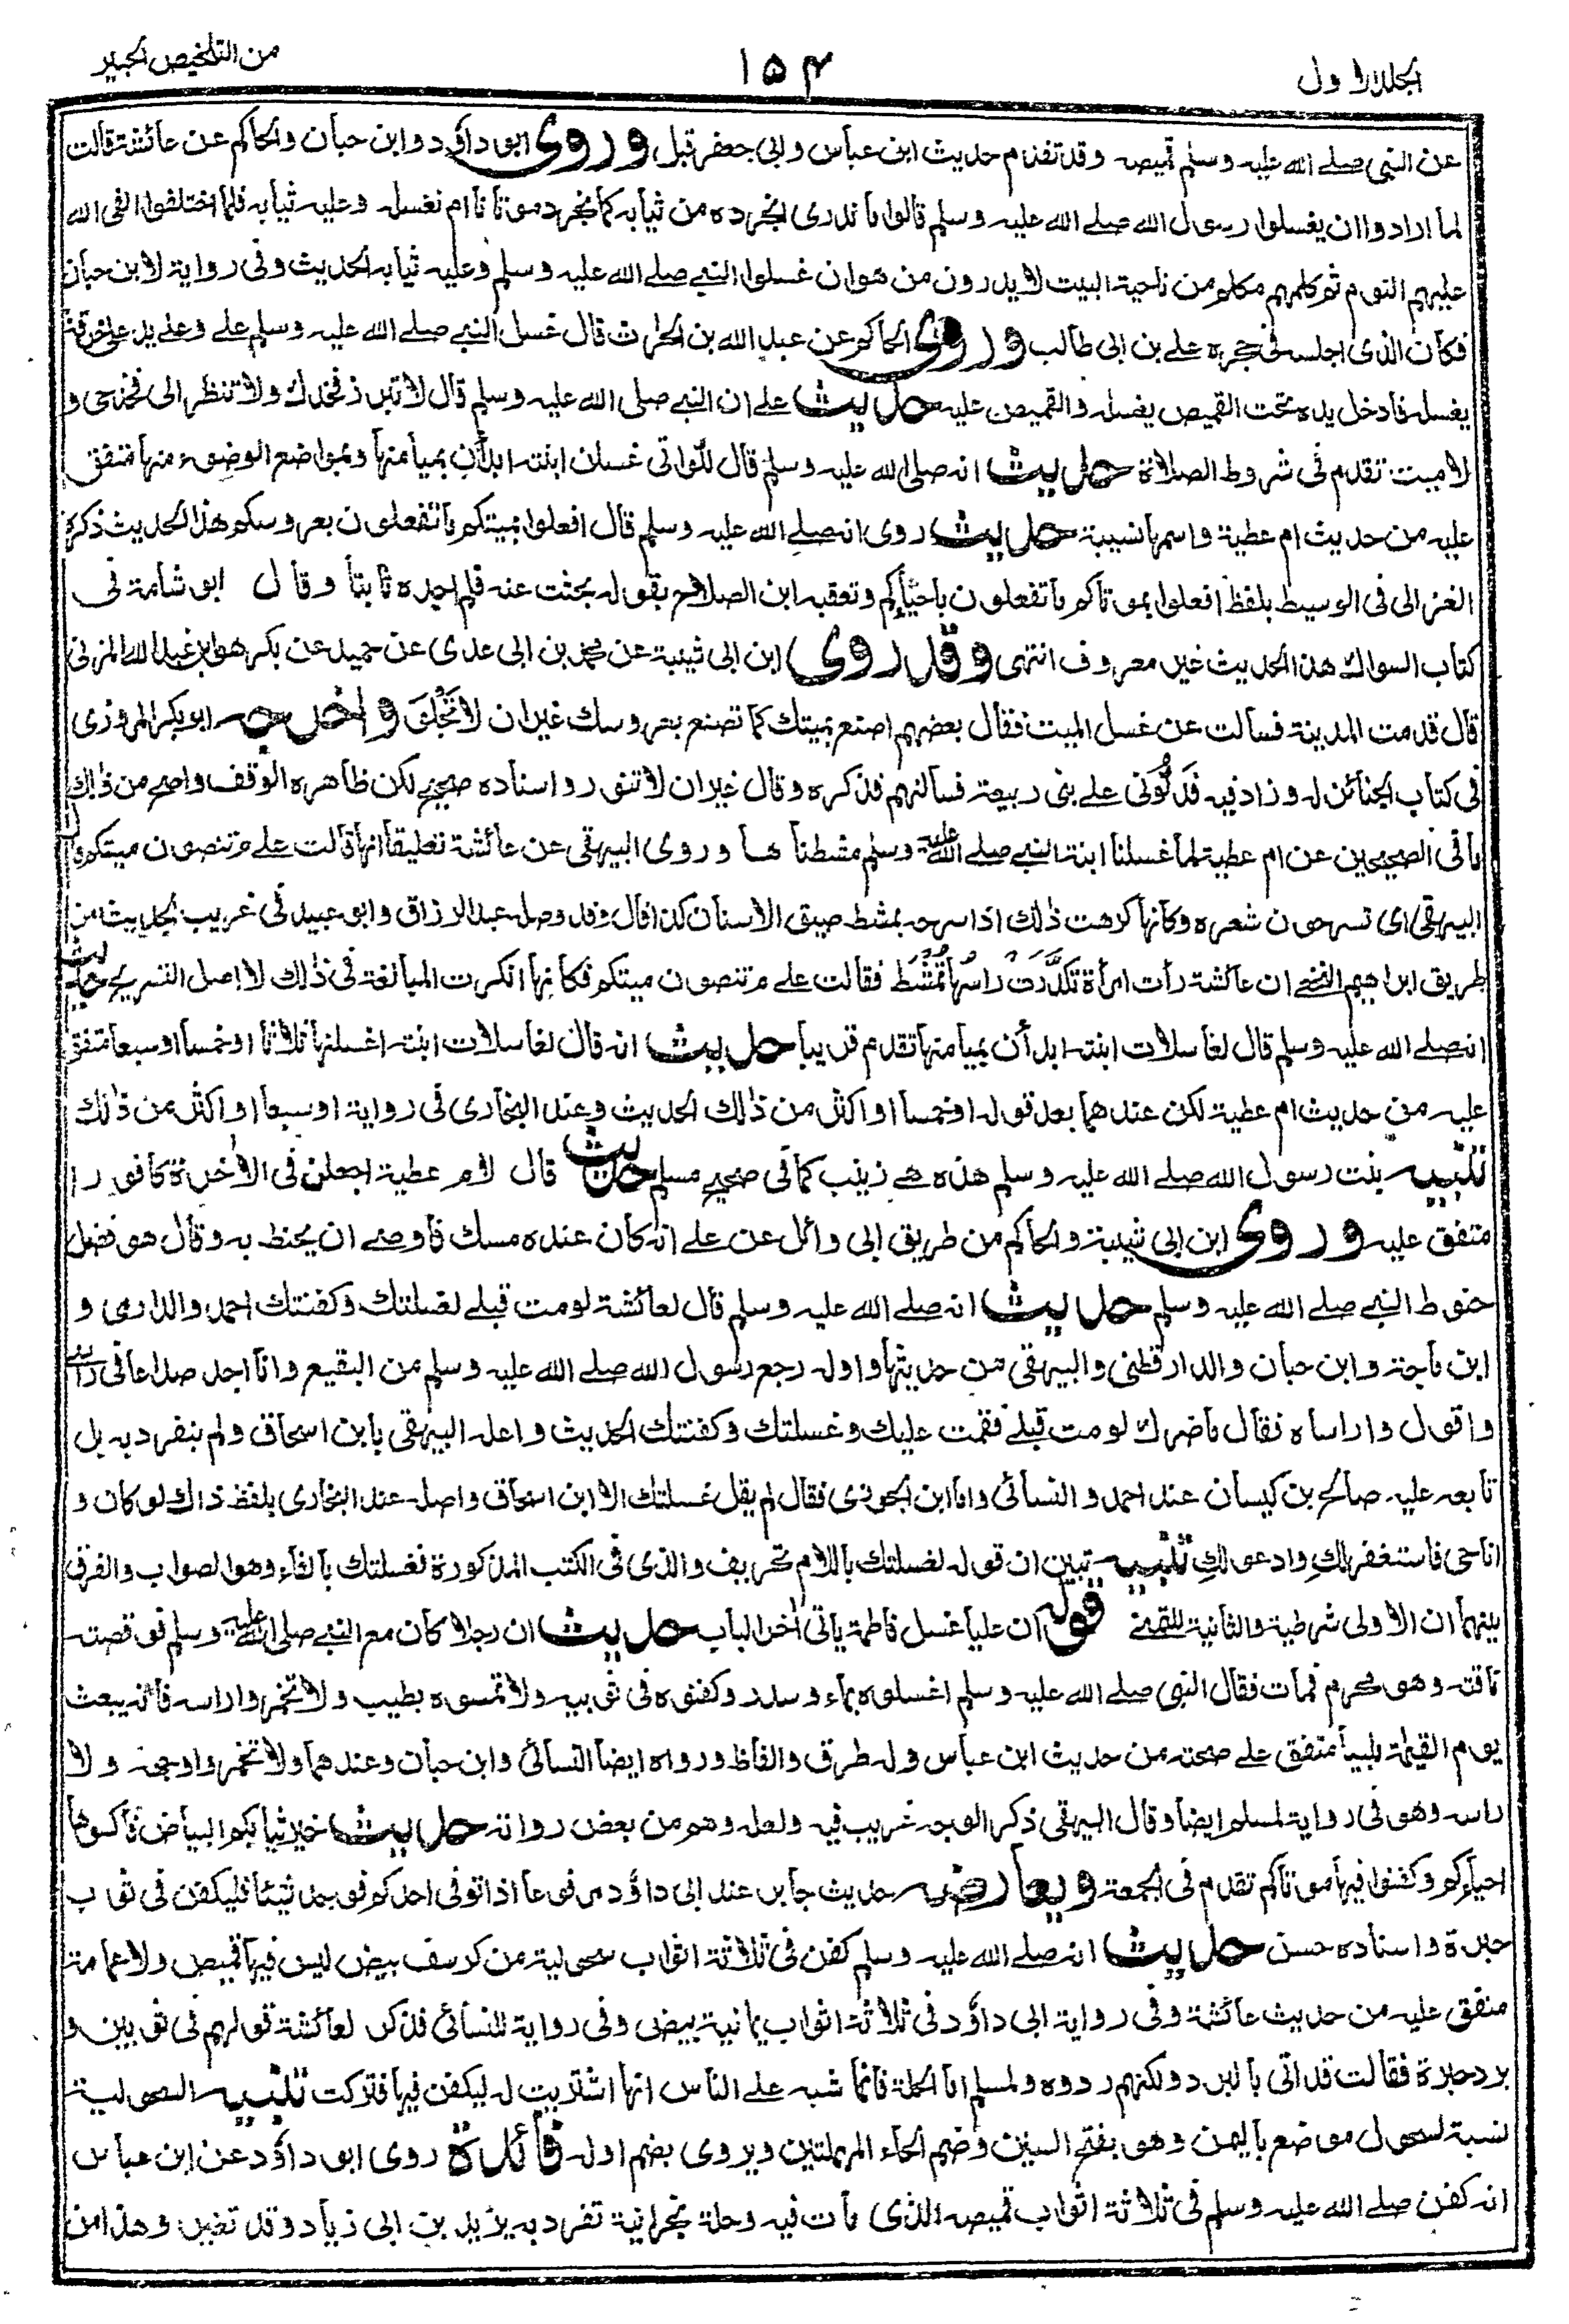 الجلد الاول
١٥٤
من التلخيص الحبير
عن النبي صلے الله عليه وسلم قميصه وقد تقدم حديث ابن عباس وابي جعفر قبل وروى ابو داؤد وابن حبان والحاكم عن عائشة قالت
لما ارادوا ان يغسلوا رسول الله صلے الله عليه وسلم قالوا ما ندري انجرده من ثيابه كما نجرد موتانا ام نغسله وعليه ثيابه فلما اختلفوا القى الله
عليهم النوم ثم كلمهم مكلم من ناحية البيت لا يدرون من هو ان غسلوا النبي صلے الله عليه وسلم وعليه ثيابه الحديث وفي رواية لابن حبان
فكان الذى اجلسه في حجره علے بن ابى طالب وروى الحاكم عن عبد الله بن الحارث قال غسل النبي صلے الله عليه وسلم علے وعلے يد علے خرقة
يغسله فادخل يده تحت القميص يغسله والقميص عليه حديث علے ان النبي صلى الله عليه وسلم قال لا تبرز فخذك ولا تنظر الى فخذ حى و
لا ميت تقدم في شروط الصلاة حديث انه صلى الله عليه وسلم قال للواتى غسلن ابنته ابدأن بميامنها وبمواضع الوضوء منها متفق
عليه من حديث ام عطية واسمها نسيبة حديث روى انه صلے الله عليه وسلم قال افعلوا بميتكم ما تفعلون بعروسكم هذا الحديث ذكره
الغزالى فى الوسيط بلفظ افعلوا بموتاكم ما تفعلون باحيائكم وتعقبه ابن الصلاح بقوله بحثت عنه فلم اجده ثابتا وقال ابو شامة في
كتاب السواك هذا الحديث غير معروف انتهى وقد روى ابن ابى شيبة عن محمد بن ابى عدى عن حميد عن بكر هو ابن عبد الله المزنى
قال قدمت المدينة فسالت عن غسل الميت فقال بعضهم اصنع بميتك كما تصنع بعروسك غير ان لا تخلق واخرجه ابو بكر المروزى
فى كتاب الجنائز له وزاد فيه فدلونى علے بنى ربيعة فسالتهم فذكره وقال غير ان لا تنور واسناده صحيح لكن ظاهره الوقف واصح من ذلك
ما فى الصحيحين عن ام عطية لما غسلنا ابنة النبي صلے الله عليه وسلم مشطناها وروى البيهقى عن عائشة تعليقا انها قالت علے م تنصون ميتكم قال
البيهقى اى تسرحون شعره وكانها كرهت ذلك اذا سرحه بمشط ضيق الاسنان كذا قال وقد وصله عبد الرزاق وابو عبيد في غريب الحديث من
طريق ابراهيم النخعے ان عائشة رأت امرأة تكدت راسها تمشط فقالت علے م تنصون ميتكم فكانها انكرت المبالغة فى ذلك لا اصل التسريح حديث
انه صلے الله عليه وسلم قال لغاسلات ابنته ابدأن بميامنها تقدم قريبا حديث انه قال لغاسلات ابنته اغسلنها ثلاثا او خمسا او سبعا متفق
عليه من حديث ام عطية لكن عندهما بعد قوله او خمسا او اكثر من ذلك الحديث وعند البخارى فى رواية او سبعا او اكثر من ذلك
تنبيه بنت رسول الله صلے الله عليه وسلم هذه هے زينب كما فى صحيح مسلم حديث قال لام عطية اجعلن فى الآخرة كافورا
متفق عليه وروى ابن ابى شيبة والحاكم من طريق ابى وائل عن علے انه كان عنده مسك فاوصے ان يحنط به وقال هو فضل
حنوط النبي صلے الله عليه وسلم حديث انه صلے الله عليه وسلم قال لعائشة لو مت قبلے لغسلتك وكفنتك احمد والدارمى و
ابن ماجة وابن حبان والدارقطنى والبيهقى من حديثها واوله رجع رسول الله صلے الله عليه وسلم من البقيع وانا اجد صداعا فى راسے
واقول واراساه فقال ما ضرك لو مت قبلے فقمت عليك وغسلتك وكفنتك الحديث واعله البيهقى بابن اسحاق ولم ينفرد به بل
تابعه عليه صالح بن كيسان عند احمد والنسائى واما ابن الجوزى فقال لم يقل غسلتك الا ابن اسحاق واصله عند البخارى بلفظ ذاك لو كان و
انا حى فاستغفر لكِ وادعو لكِ تنبيه تبين ان قوله لغسلتك باللام تحريف والذى فى الكتب المذكورة فغسلتك بالفاء وهو الصواب والفرق
بينهما ان الاولى شرطية والثانية للتمنے قوله ان عليا غسل فاطمة ياتى آخر الباب حديث ان رجلا كان مع النبي صلى الله عليه وسلم فوقصته
ناقته وهو محرم فمات فقال النبى صلے الله عليه وسلم اغسلوه بماء وسدر وكفنوه فى ثوبيه ولا تمسوه بطيب ولا تخمروا راسه فانه يبعث
يوم القيمة ملبيا متفق علے صحته من حديث ابن عباس وله طرق والفاظ ورواه ايضا النسائى وابن حبان وعندهما ولا تخمروا وجهه ولا
راسه وهو فى رواية لمسلم ايضا وقال البيهقى ذكر الوجه غريب فيه ولعله وهم من بعض رواته حديث خير ثيابكم البياض فاكسوها
احياءكم وكفنوا فيها موتاكم تقدم فى الجمعة ويعارضه حديث جابر عند ابى داؤد مرفوعا اذا توفى احدكم فوجد شيئا فليكفن فى ثوب
حبرة واسناده حسن حديث انه صلے الله عليه وسلم كفن فى ثلاثة اثواب سحولية من كرسف بيض ليس فيها قميص ولا عمامة
متفق عليه من حديث عائشة وفى رواية ابى داؤد فى ثلاثة اثواب يمانية بيض وفى رواية للنسائى فذكر لعائشة قولهم فى ثوبين و
برد حبرة فقالت قد اتى بالبرد ولكنهم ردوه ولمسلم اما الحلة فانما شبه علے الناس انها اشتريت له ليكفن فيها فتركت تنبيه السحولية
نسبة لسحول موضع باليمن وهو بفتح السين وضم الحاء المهملتين ويروى بضم اوله فائدة روى ابو داؤد عن ابن عباس
انه كفن صلے الله عليه وسلم فى ثلاثة اثواب قميصه الذى مات فيه وحلة نجرانية تفرد به يزيد بن ابى زياد وقد تغير وهذا من